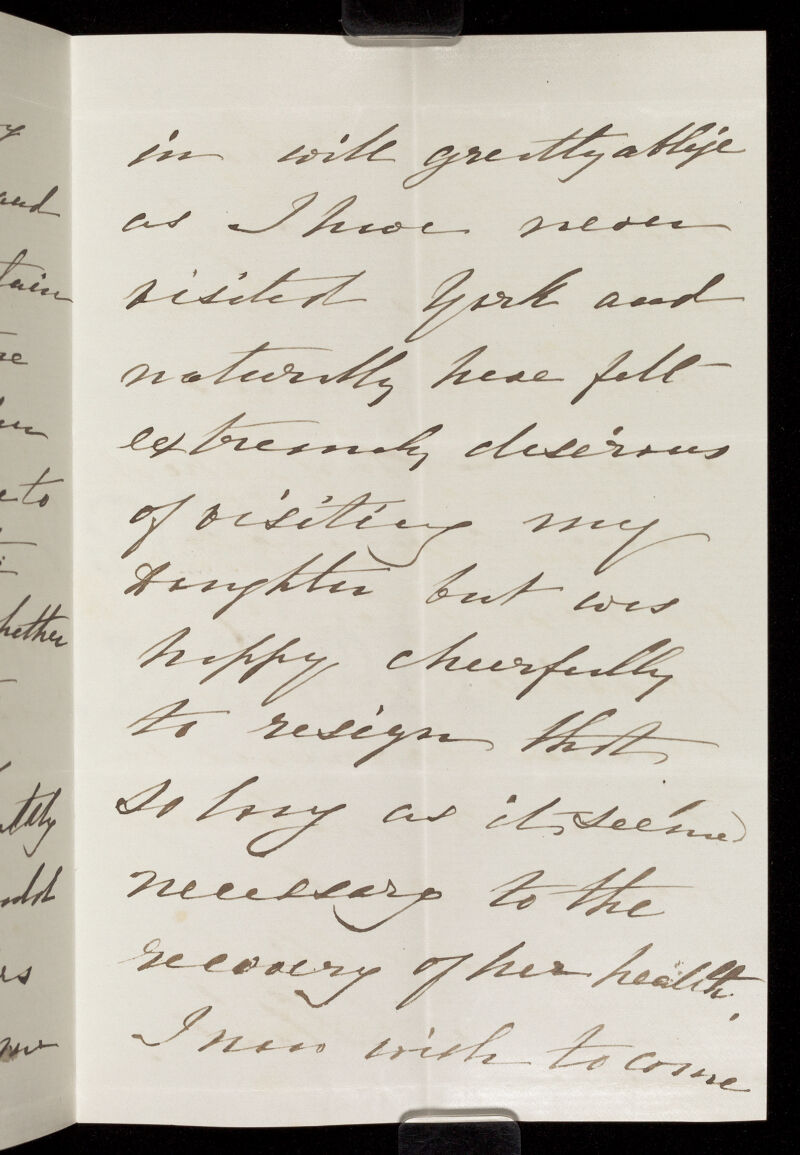 y
and
tain
re
to
hether
tely
rs
in will greatly oblije
as I have never
visited York and
naturally have felt
extremely desirous
of visiting my
Daughter but was
happy cheerfully
to resign that
so long as it seemed
necessary to the
recovery of her health.
I now wish to come